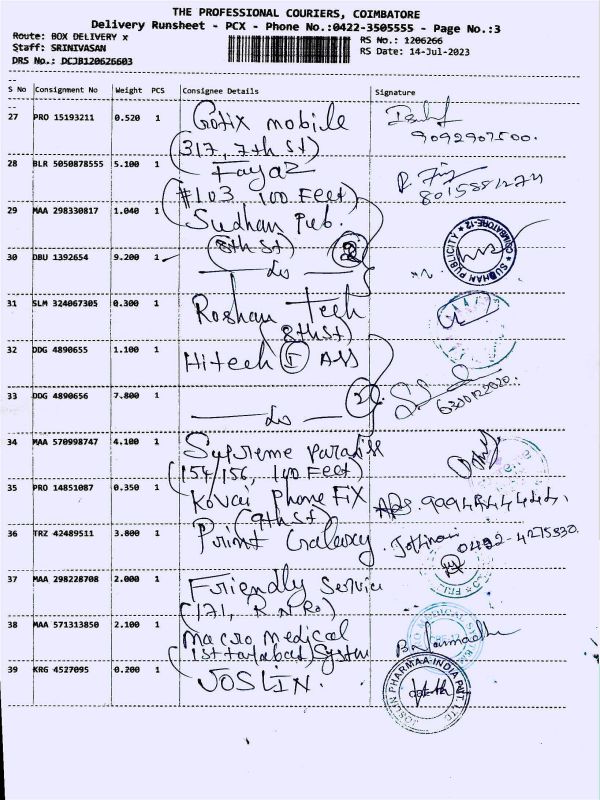 THE PROFESSIONAL COURIERS, COIMBATORE
Delivery Runsheet - PCX - Phone No.:0422-3505555 - Page No.:3
Route: BOX DELIVERY x
RS No.: 1206266
Staff: SRINIVASAN
RS Date: 14-Jul-2023
DRS No.: DCJB120626603
S No Consignment No Weight PCS Consignee Details Signature
27 PRO 15193211 0.520 1 Gofix mobile
(317, 7th St)
9092907500.
28 BLR 5050878555 5.100 1 Fayaz
(#103 100 Feet)
29 MAA 298330817 1.040 1 Sudhan Pub.
(8th St) 2
SUBHAN PUBLICITY * COIMBATORE-12 *
30 DBU 1392654 9.200 1 — do —
31 SLM 324067305 0.300 1 Roshan Tech
(8th St)
32 DDG 4890655 1.100 1 Hitech I Ass
33 DDG 4890656 7.800 1 — do — 2
34 MAA 570998747 4.100 1 Supreme Paradise
(154/156, 100 Feet)
35 PRO 14851087 0.350 1 Kovai Phone FIX
(9th St)
36 TRZ 42489511 3.800 1 Print Galaxy
37 MAA 298228708 2.000 1 Friendly Service
(171, R.N.Ro)
38 MAA 571313850 2.100 1 Macro medical System
39 KRG 4527095 0.200 1 JOSLIN.
JOSLIN PHARMAA INDIA PVT. LTD.